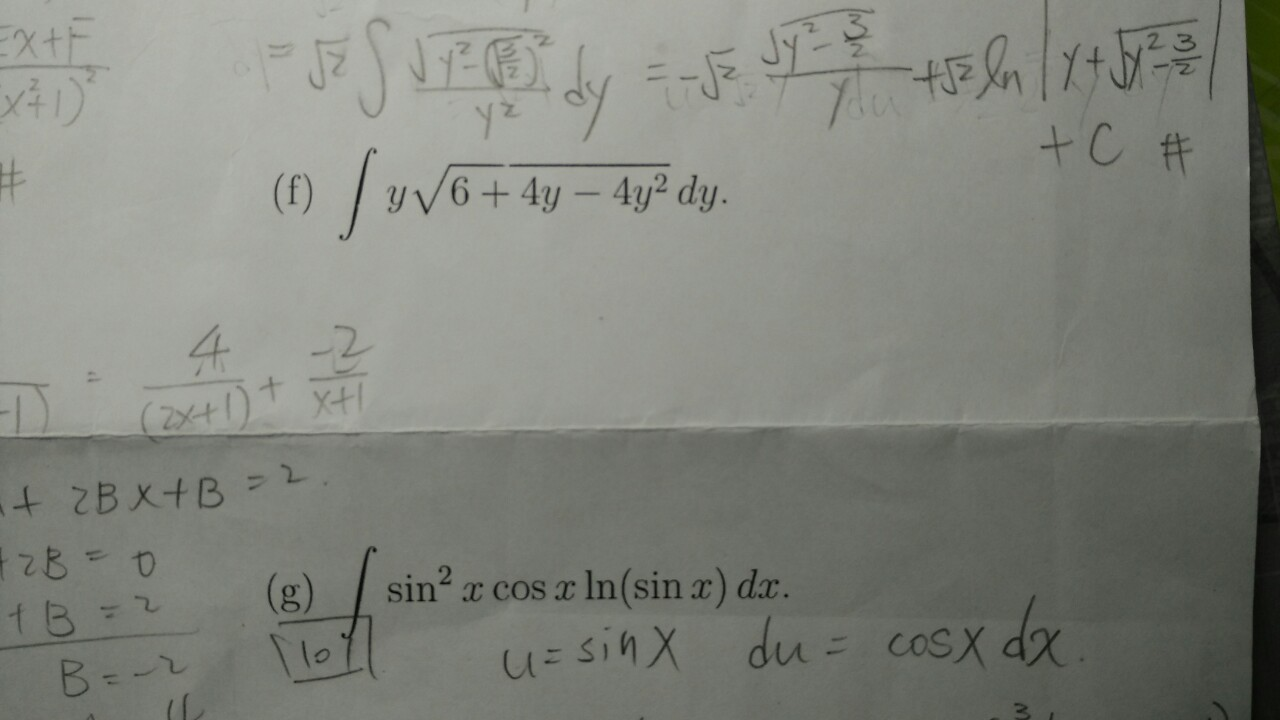 Ex+F
(x²+1)²
= √2 ∫ √(y²-(√(3/2))²) / y² dy = -√2 √(y²-3/2) / y + √2 ln |y+√(y²-3/2)|
+ C #
#
(f) ∫ y√(6 + 4y − 4y²) dy.
-1) = 4/(2x+1) + -2/(x+1)
+ 2Bx+B = 2.
+2B = 0
+ B = 2
B = -2
(g) ∫ sin² x cos x ln(sin x) dx.
10
u = sinx du = cosx dx.